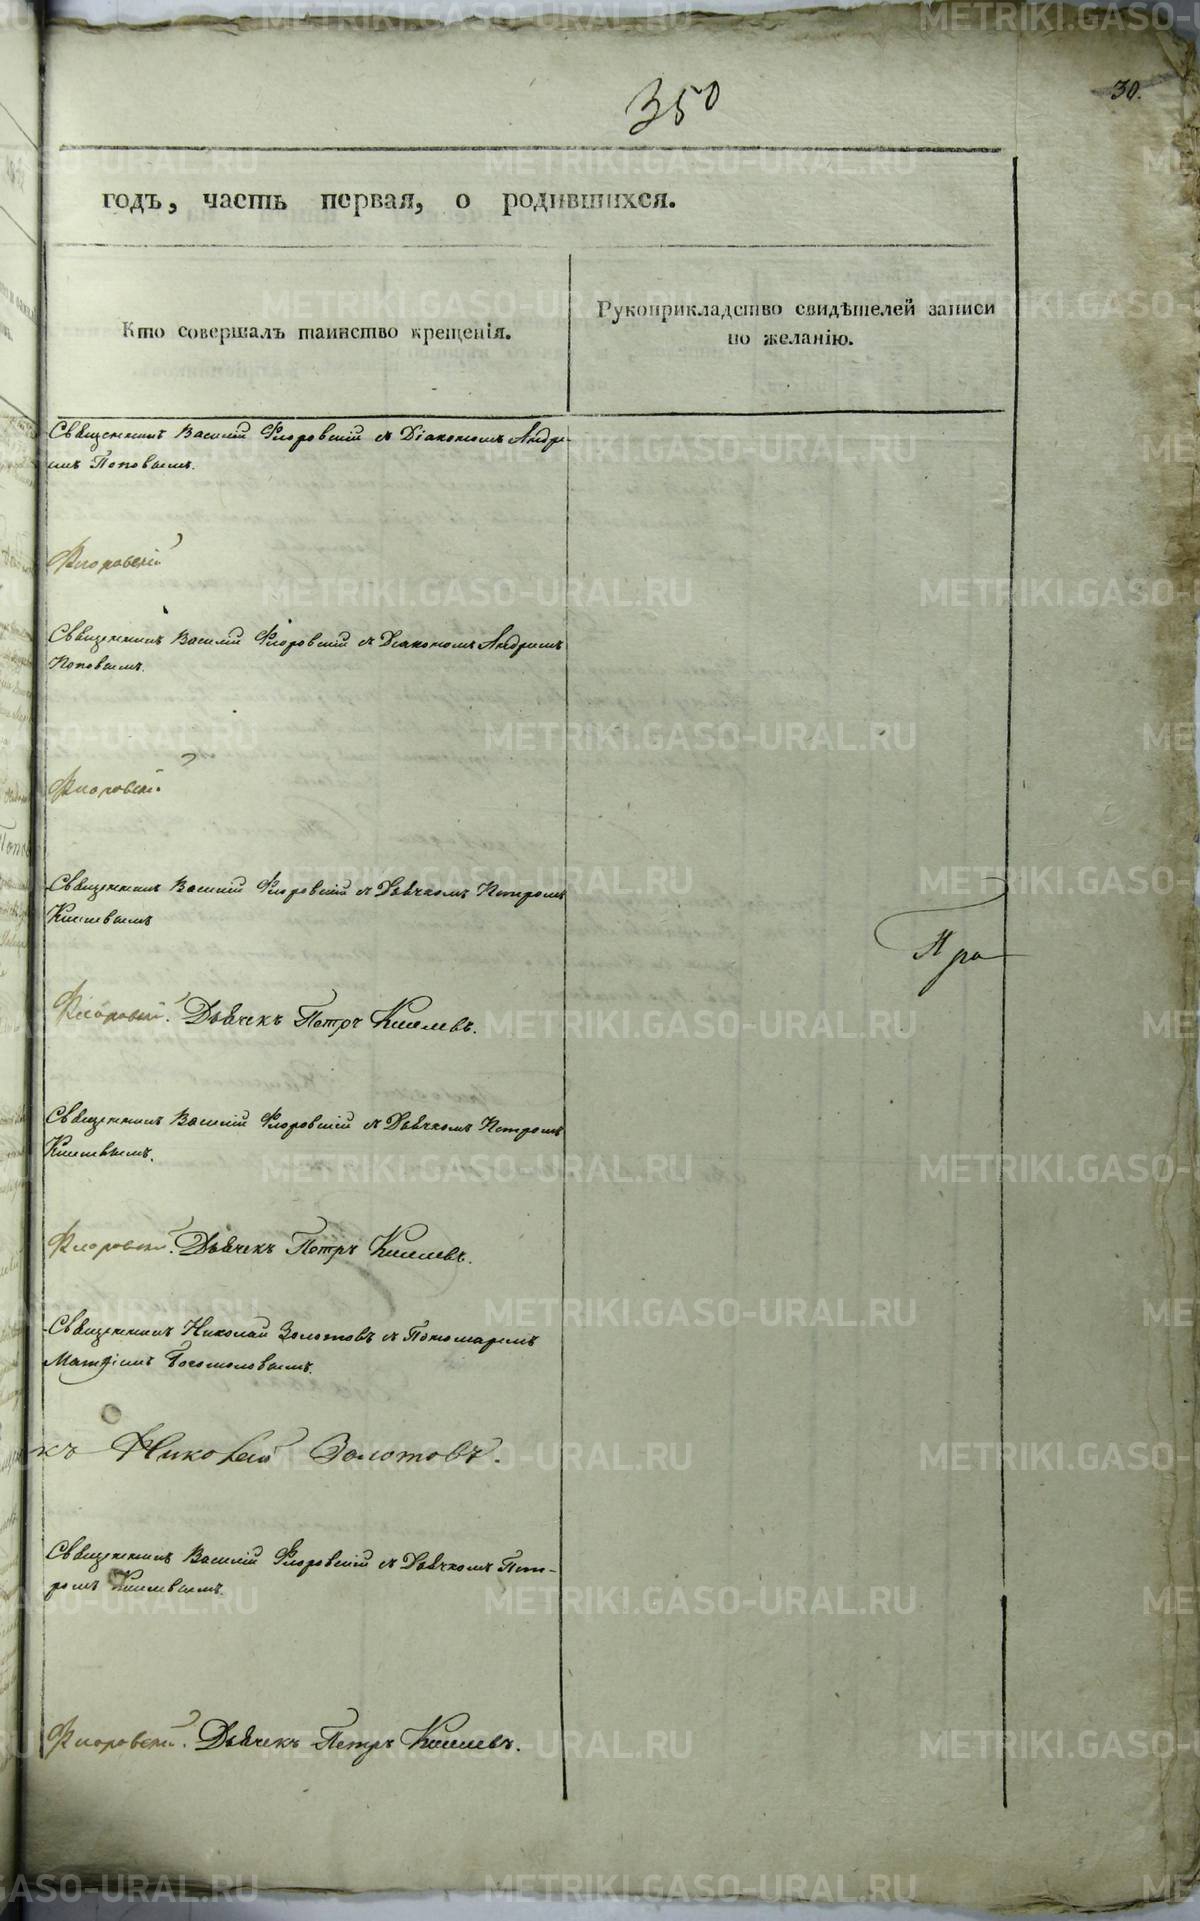 350
30.
годъ, часть первая, о родившихся.
Кто совершалъ таинство крещенія.
Рукоприкладство свидѣтелей записи
по желанію.
Священникъ Василій Флоровскій съ Діакономъ Андре-
емъ Поповымъ.
Флоровскій
Священникъ Василій Флоровскій съ Діакономъ Андреемъ
Поповымъ.
Флоровскій.
Священникъ Василій Флоровскій съ Дьячкомъ Петромъ
Киселевымъ
Пра
Флоровскій. Дьячекъ Петръ Киселевъ.
Священникъ Василій Флоровскій съ Дьячкомъ Петромъ
Киселевымъ.
Флоровскій. Дьячекъ Петръ Киселевъ.
Священникъ Николай Золотовъ съ Пономаремъ
Матѳіемъ Богомоловымъ.
къ Николай Золотовъ.
Священникъ Василій Флоровскій съ Дьячкомъ Пет-
ромъ Киселевымъ.
Флоровскій. Дьячекъ Петръ Киселевъ.
METRIKI.GASO-URAL.RU